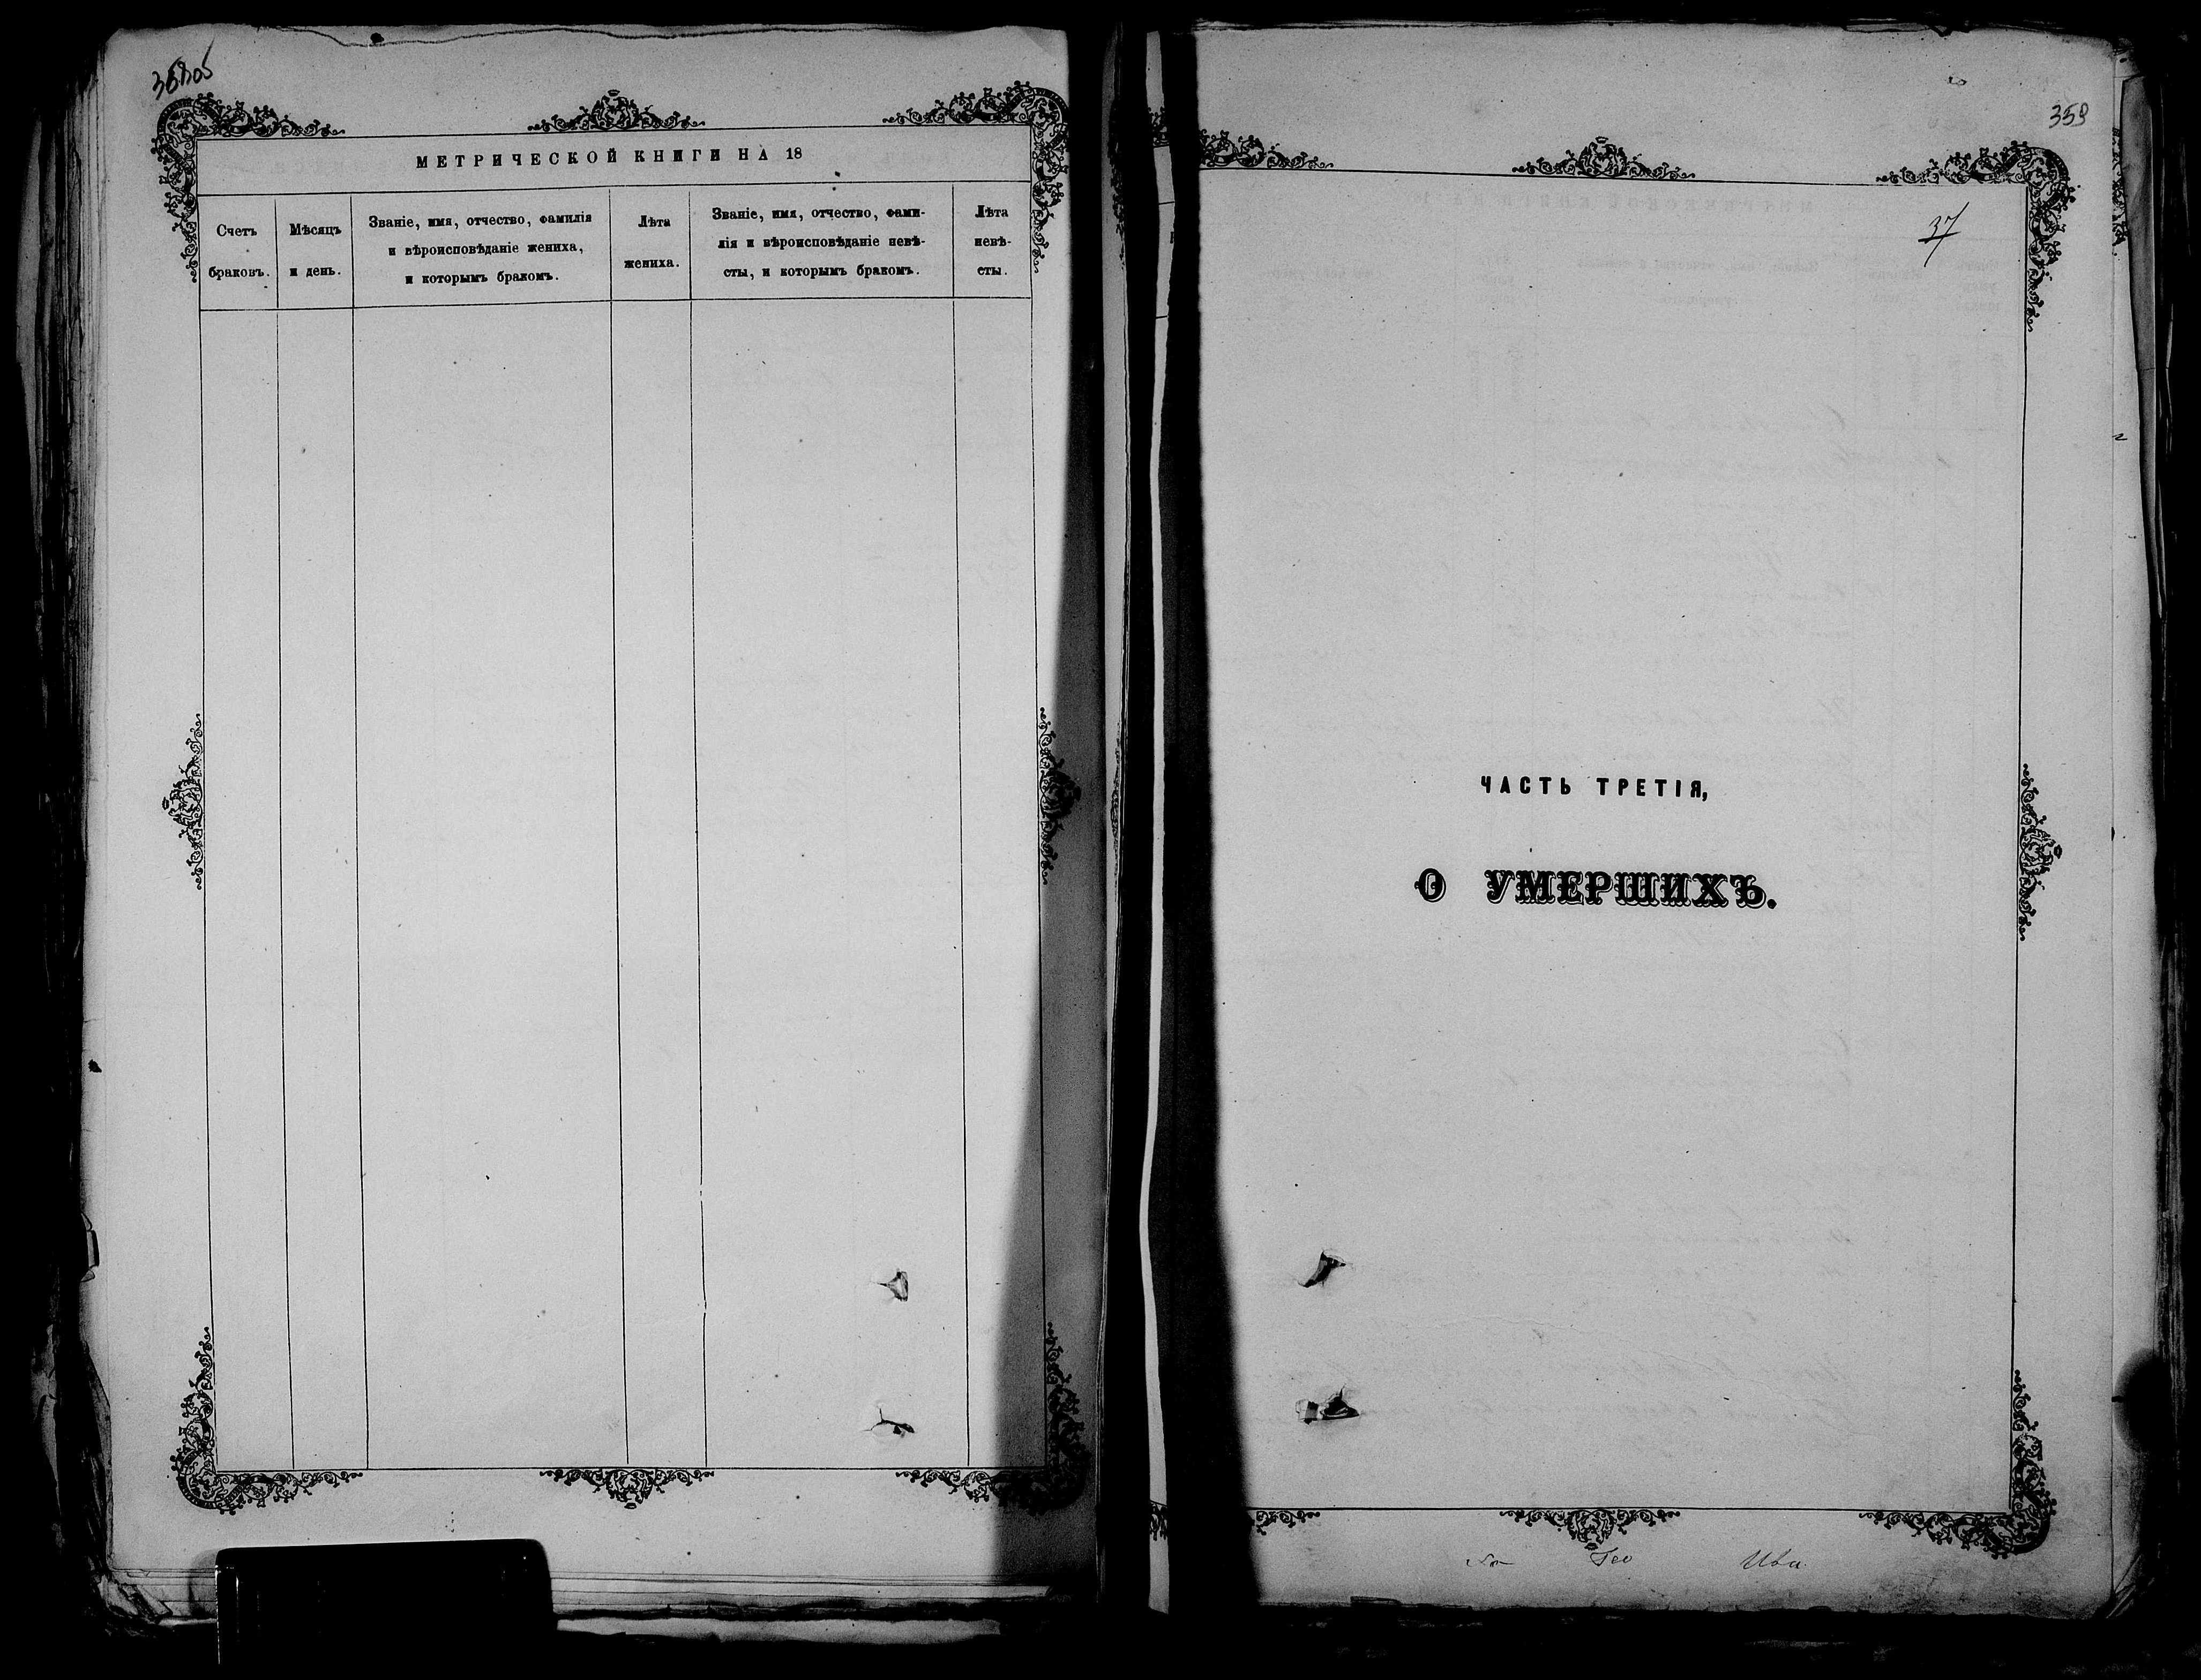 МЕТРИЧЕСКОЙ КНИГИ НА 18
Счетъ
браковъ.
Мѣсяцъ
и день.
Званіе, имя, отчество, фамилія
и вѣроисповѣданіе жениха,
и которымъ бракомъ.
Лѣта
жениха.
Званіе, имя, отчество, фами-
лія и вѣроисповѣданіе невѣ-
сты, и которымъ бракомъ.
Лѣта
невѣ-
сты.
359
37
ЧАСТЬ ТРЕТІЯ,
О УМЕРШИХЪ.
Гео Ива